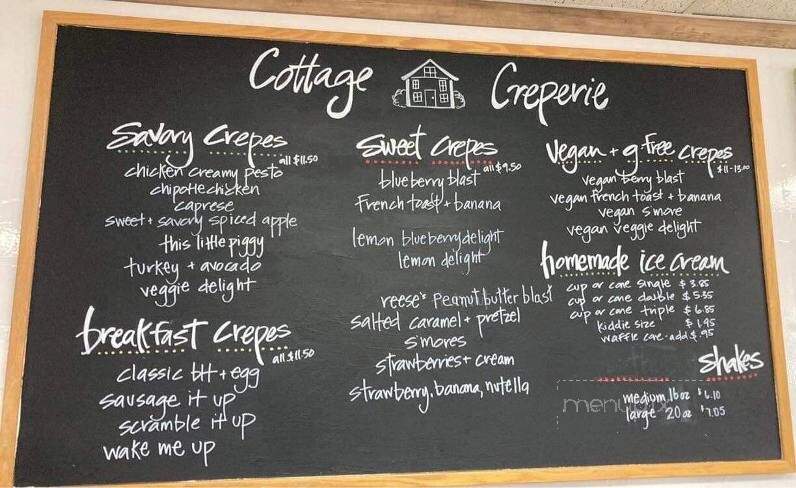 Cottage Creperie
Savory Crepes
all $11.50
chicken creamy pesto
chipotle chicken
caprese
sweet + savory spiced apple
this little piggy
turkey + avocado
veggie delight
breakfast crepes
all $11.50
classic blt + egg
sausage it up
scramble it up
wake me up
Sweet Crepes
all $9.50
blueberry blast
French toast + banana
lemon blueberry delight
lemon delight
reese's Peanut butter blast
salted caramel + pretzel
S'mores
strawberries + cream
strawberry, banana, nutella
Vegan + g-free crepes
$11-13.00
vegan berry blast
vegan french toast + banana
vegan s'more
vegan veggie delight
homemade ice cream
cup or cone single $3.85
cup or cone double $5.35
cup or cone triple $6.85
kiddie size $1.95
waffle cone - add $.95
shakes
medium 16oz $6.10
large 20oz $7.05